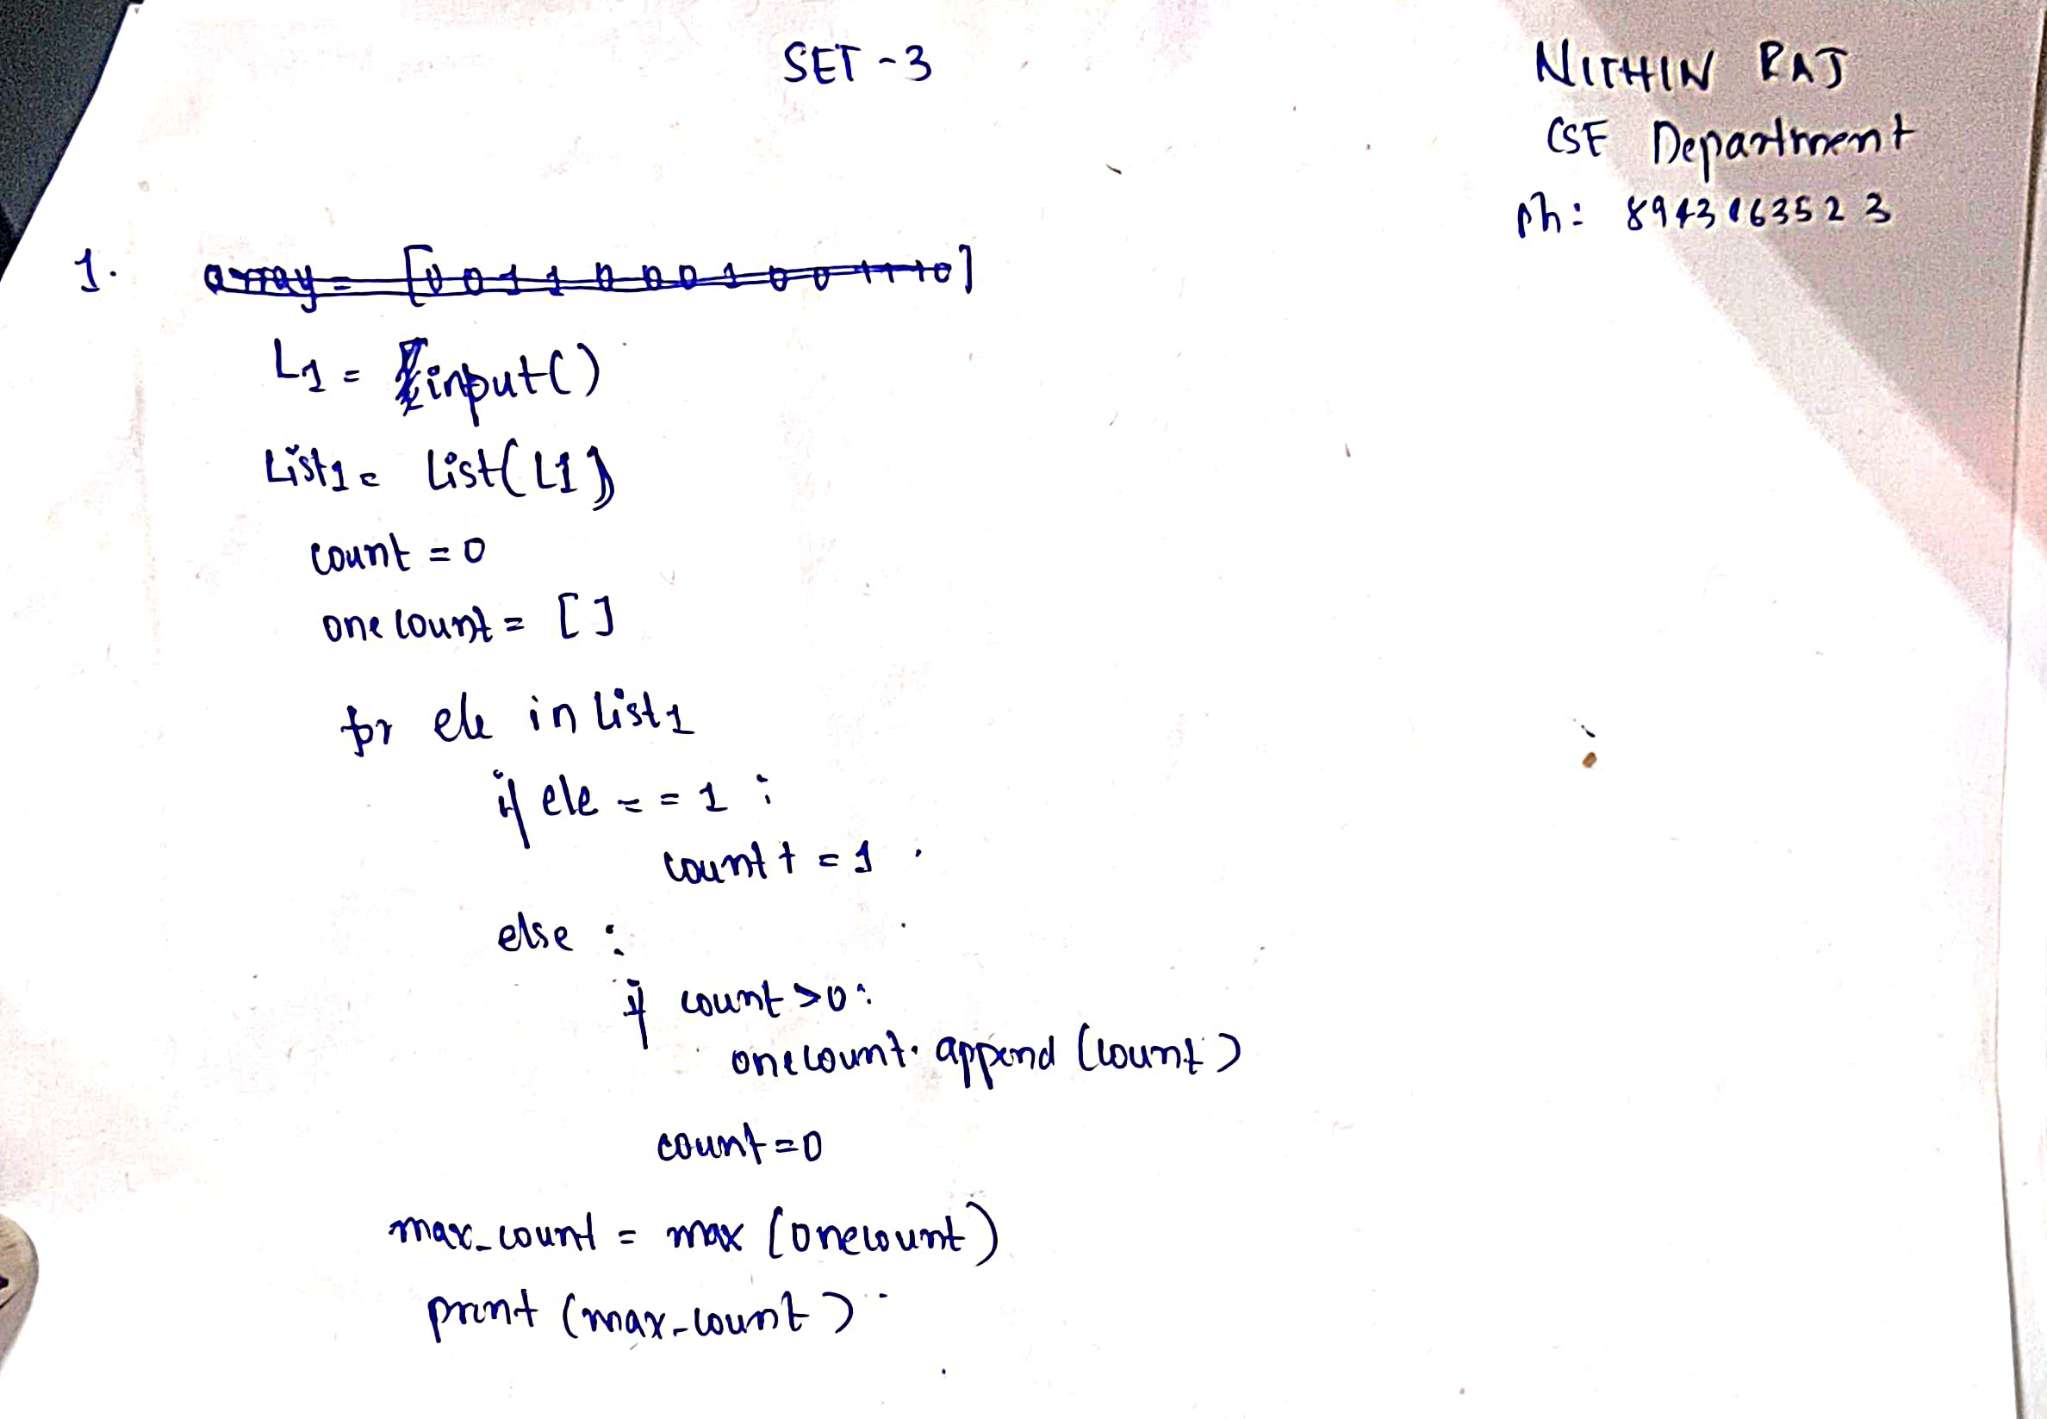 SET - 3
NITHIN RAJ
CSE Department
Ph: 8943163523
1. array = [0 0 1 1 0 0 0 1 0 0 1 1 1 0]
L1 = input()
List1 = List(L1)
count = 0
onecount = [ ]
for ele in List1
if ele == 1 :
count += 1
else :
if count > 0 :
onecount. append (count)
count = 0
max_count = max (onecount)
print (max_count)